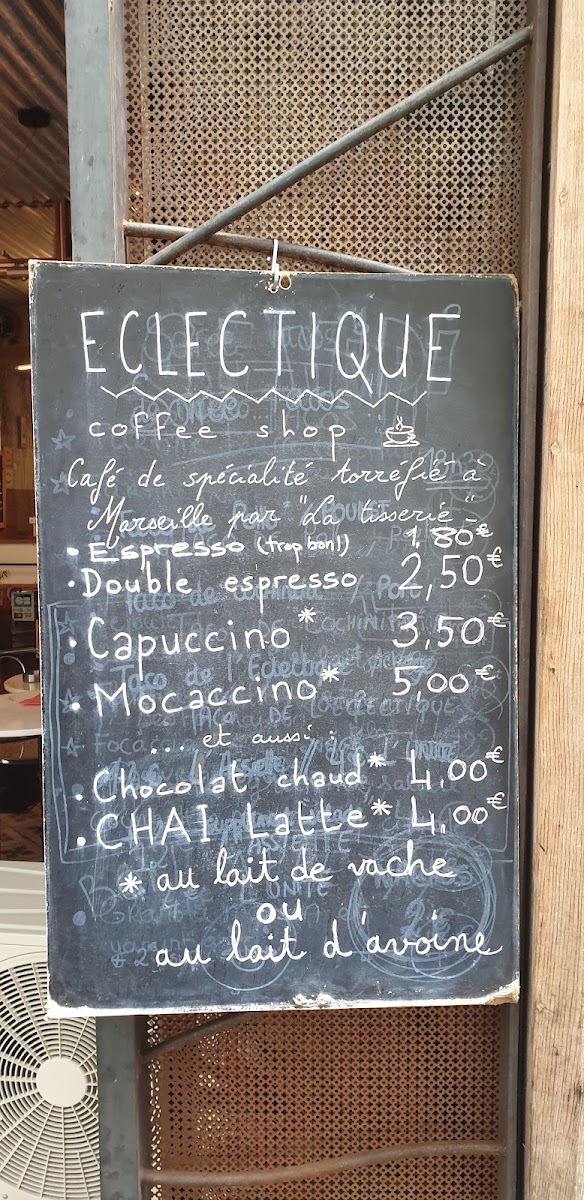 ECLECTIQUE
coffee shop
Café de spécialité torréfié à
Marseille par "La tisserie"
• Espresso (trop bon!) 1,80€
• Double espresso 2,50€
• Capuccino* 3,50€
• Mocaccino* 5,00€
.... et aussi :
• Chocolat chaud* 4,00€
• CHAI Latte* 4,00€
* au lait de vache
ou
au lait d'avoine